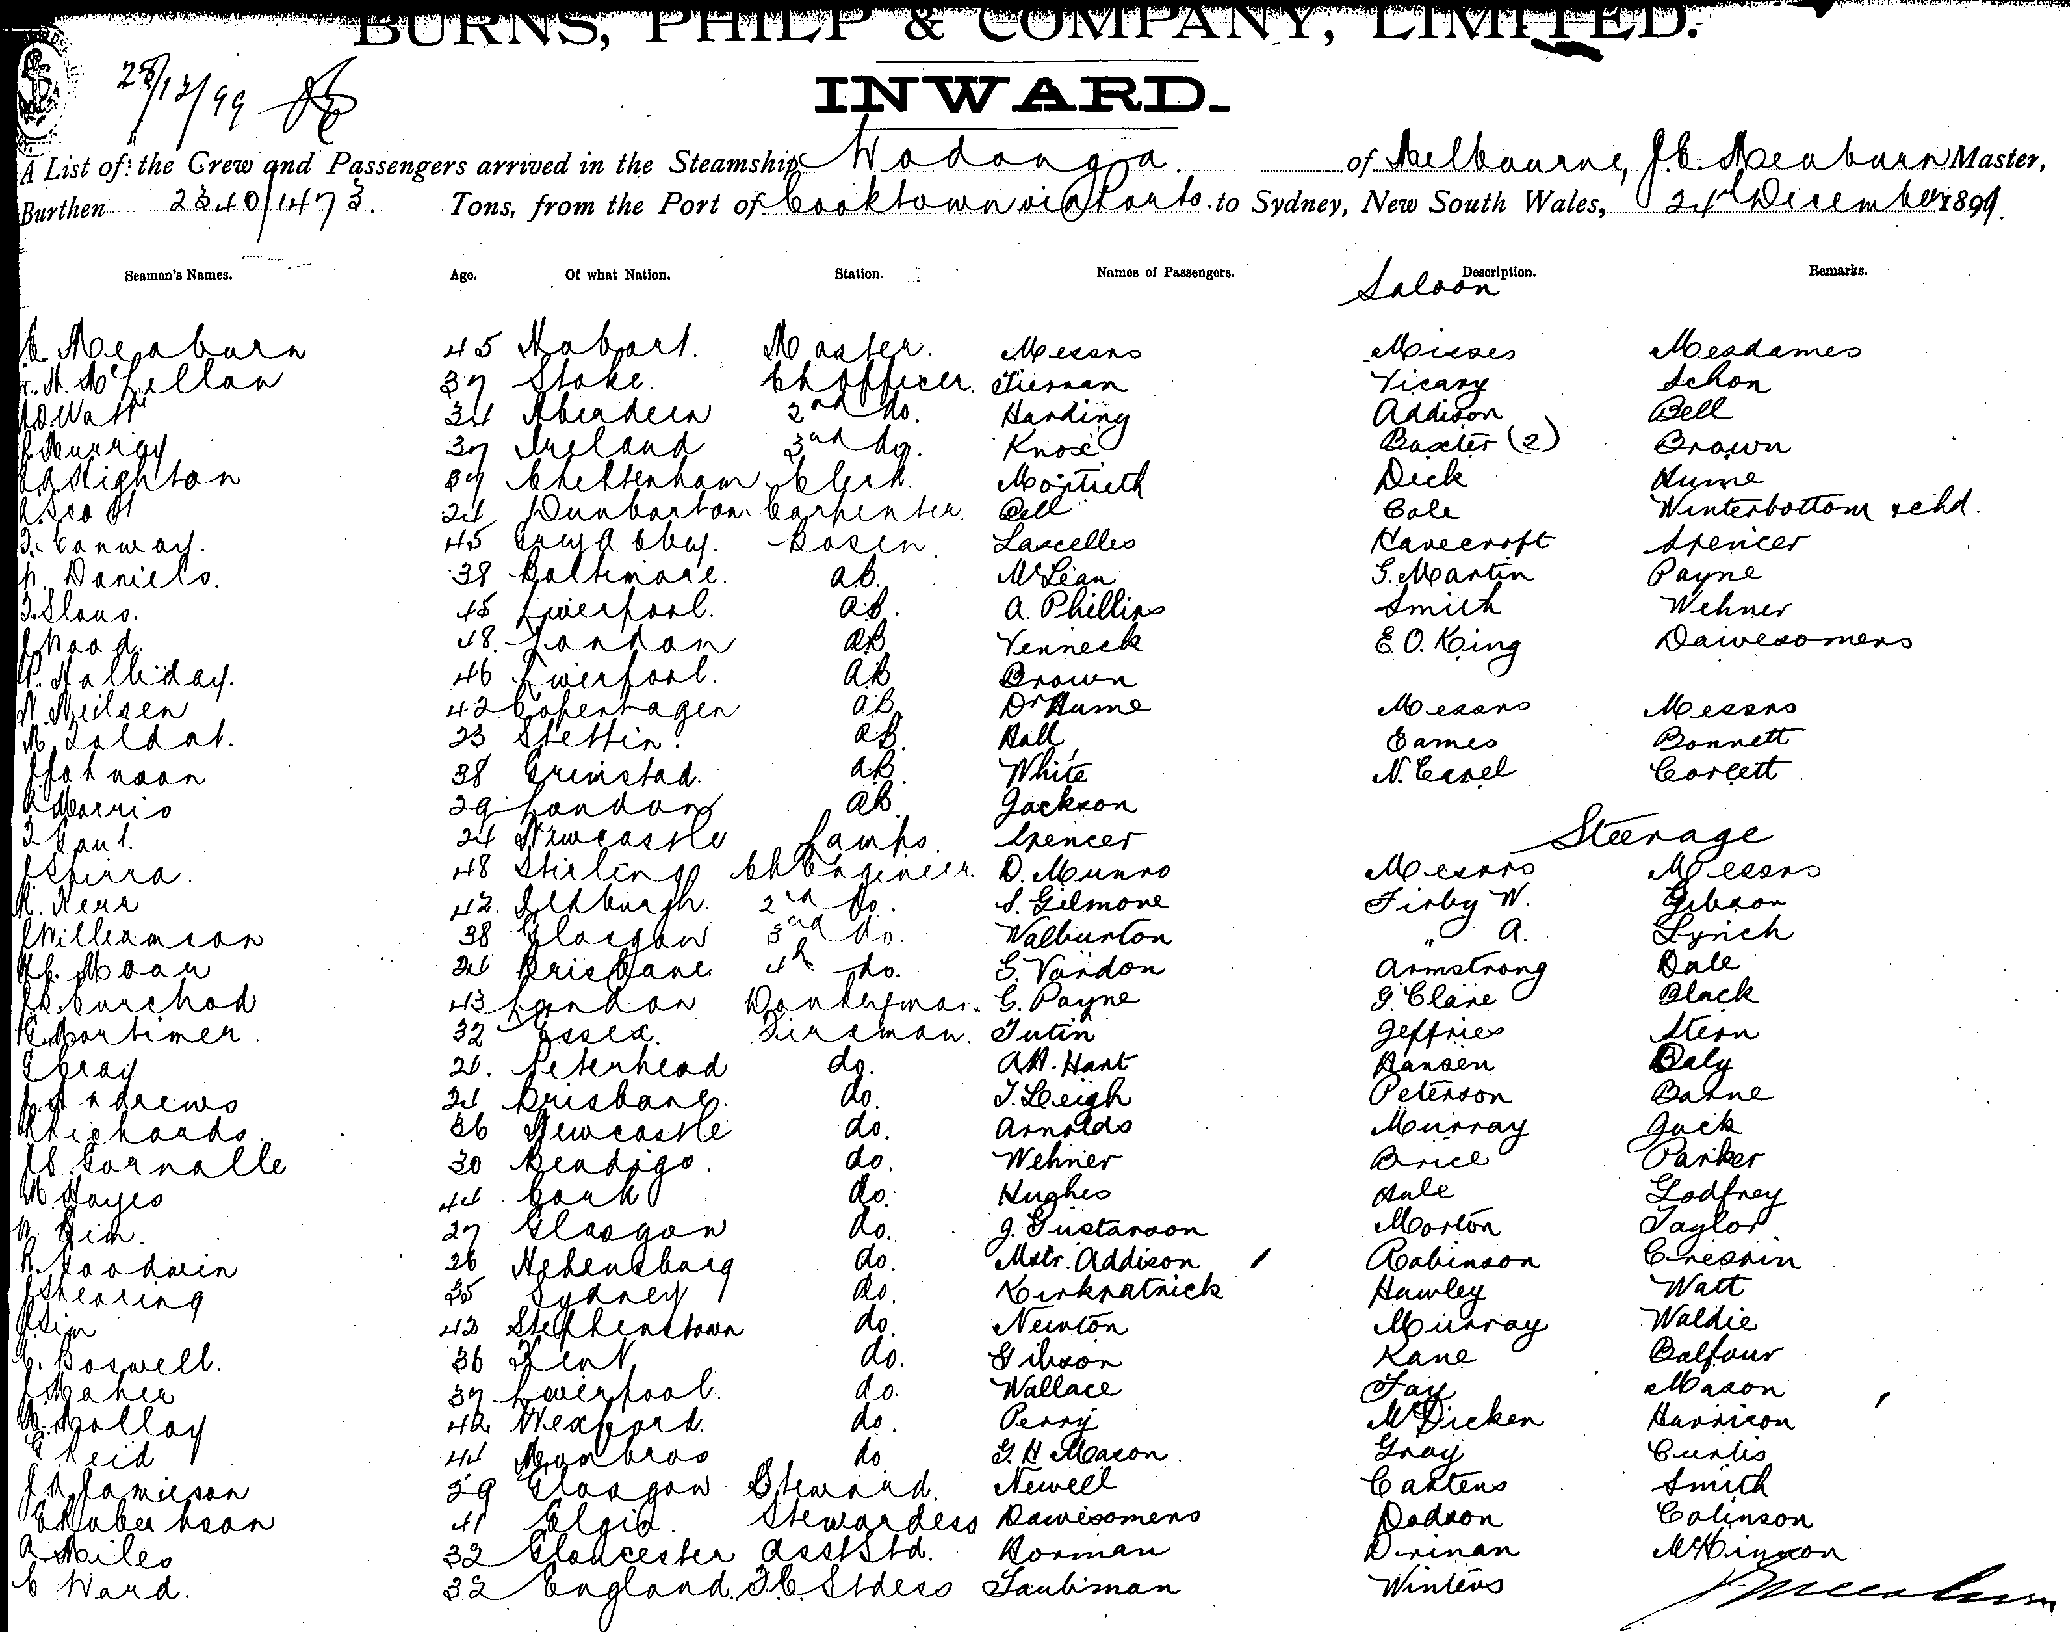 BURNS, PHILP & COMPANY, LIMITED.
INWARD.
28/12/99
A List of the Crew and Passengers arrived in the Steamship Wodonga of Melbourne, J.E. Meaburn Master,
Burthen 2340/1473 Tons, from the Port of Cooktown via Ports to Sydney, New South Wales, 24th December 1899.
Seaman's Names. Age. Of what Nation. Station. Names of Passengers. Description. Remarks.
Saloon
E. Meaburn 45 Hobart. Master. Messrs Misses Mesdames
McLellan 37 Stoke. Ch Officer. Tiernan Vicary Schon
Watt 34 Aberdeen 2nd do. Harding Addison Bell
Murray 37 Ireland 3rd do. Knox Baxter (2) Brown
Nighton 39 Cheltenham Clerk Monteith Dick Hume
Scott 24 Dunbarton Carpenter. Bell Cole Winterbottom & chd.
Conway. 45 Greyabbey. Bosen. Lascelles Spencer
Daniels. 38 Baltimore. AB. McLean G. Martin Payne
Sloas. 45 Liverpool. AB. A. Phillips Smith Wehner
Wood. 48. London AB Venneck E. O. King Dawesomers
Halliday. 46 Liverpool. AB Brown
Neilsen 42 Copenhagen AB Dr Hume Messrs Messrs
Soldat. 23 Stettin. AB. Hall Eames Bonnett
Johnson 38 Grimstad. AB. White N. Casel Corlett
Morris 29 London AB Jackson
Gaut. 24 Newcastle Lamps. Spencer
Steerage
Spirra. 48 Stirling Ch Engineer. D. Munro Messrs Messrs
Kerr 42. Jedburgh. 2nd do. S. Gilmore Firby W. Gibson
Williamson 38 Glasgow 3rd do. Walburton " A. Lynch
Moar 24 Brisbane 4th do. G. Vardon Armstrong Dale
Burchod 43 London Donkeyman. C. Payne G. Clare Black
Mortimer. 32 Essex. Fireman. Tutin Jeffries Stern
Gray 21. Peterhead do. A.H. Hart Hansen Daly
Andrews 24 Brisbane. do. T. Leigh Peterson Barne
Richards. 36 Newcastle do. Arnolds Murray Jack
Gornalle 30 Bendigo. do. Wehner Brice Parker
Hayes 44 Cork do. Hughes Hale Godfrey
27 Glasgow do. J. Gustavson Morton Taylor
Goodwin 26 do. Mstr. Addison Robinson Cresspin
Shearing 35 Sydney do. Kirkpatrick Hawley Watt
Sim 43 Stephenstown do. Newton Murray Waldie
Boswell. 36 Kent do. Gibson Kane Balfour
Maher 37 Liverpool. do. Wallace Fay Mason
Molloy 42 Wexford. do. Perry McDicken Harrison
Reid 44 do G. H Mason. Gray Curtis
Jamieson 39 Glasgow Steward. Newell Cartens Smith
Robertson 41 Elgin. Stewardess Dawesomers Dodson Colinson
Miles 32 Gloucester Asst Std. Horman Drinan McKinnon
C Ward. 32 England. Stdess Taubman Winters